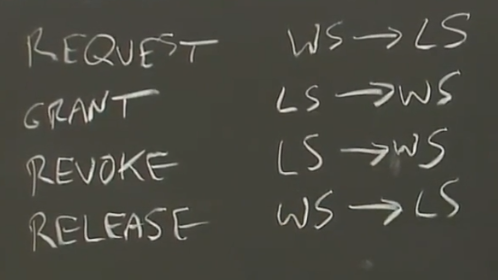 REQUEST WS → LS
GRANT LS → WS
REVOKE LS → WS
RELEASE WS → LS